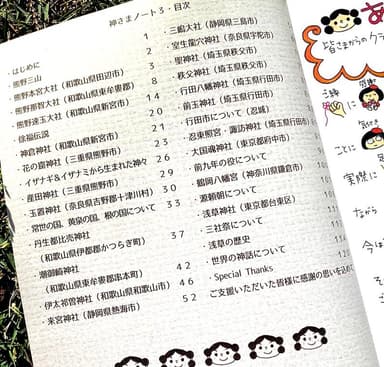 神さまノート3・目次
・はじめに 1
・熊野三山 2
・熊野本宮大社(和歌山県田辺市) 3
・熊野那智大社(和歌山県東牟婁郡) 8
・熊野速玉大社(和歌山県新宮市) 14
・徐福伝説 20
・神倉神社(和歌山県新宮市) 21
・花の窟神社(三重県熊野市) 23
・イザナギ&イザナミから生まれた神々 26
・産田神社(三重県熊野市) 29
・玉置神社(奈良県吉野郡十津川村) 30
・常世の国、黄泉の国、根の国について 33
・丹生都比売神社
(和歌山県伊都郡かつらぎ町) 37
・潮御崎神社
(和歌山県東牟婁郡串本町) 42
・伊太祁曽神社(和歌山県和歌山市) 46
・来宮神社(静岡県熱海市) 52
・三嶋大社(静岡県三島市)
・室生龍穴神社(奈良県宇陀市)
・聖神社(埼玉県秩父市)
・秩父神社(埼玉県秩父市)
・行田八幡神社(埼玉県行田市)
・前玉神社(埼玉県行田市)
・行田市について(忍城)
・忍東照宮・諏訪神社(埼玉県行田市)
・大国魂神社(東京都府中市)
・前九年の役について
・鶴岡八幡宮(神奈川県鎌倉市)
・源頼朝について
・浅草神社(東京都台東区)
・三社祭について
・浅草の歴史
・世界の神話について
・Special Thanks
ご支援いただいた皆様に感謝の思いを込めて
皆さまからのクラ
感謝
ことに
実際に
ながら
今は